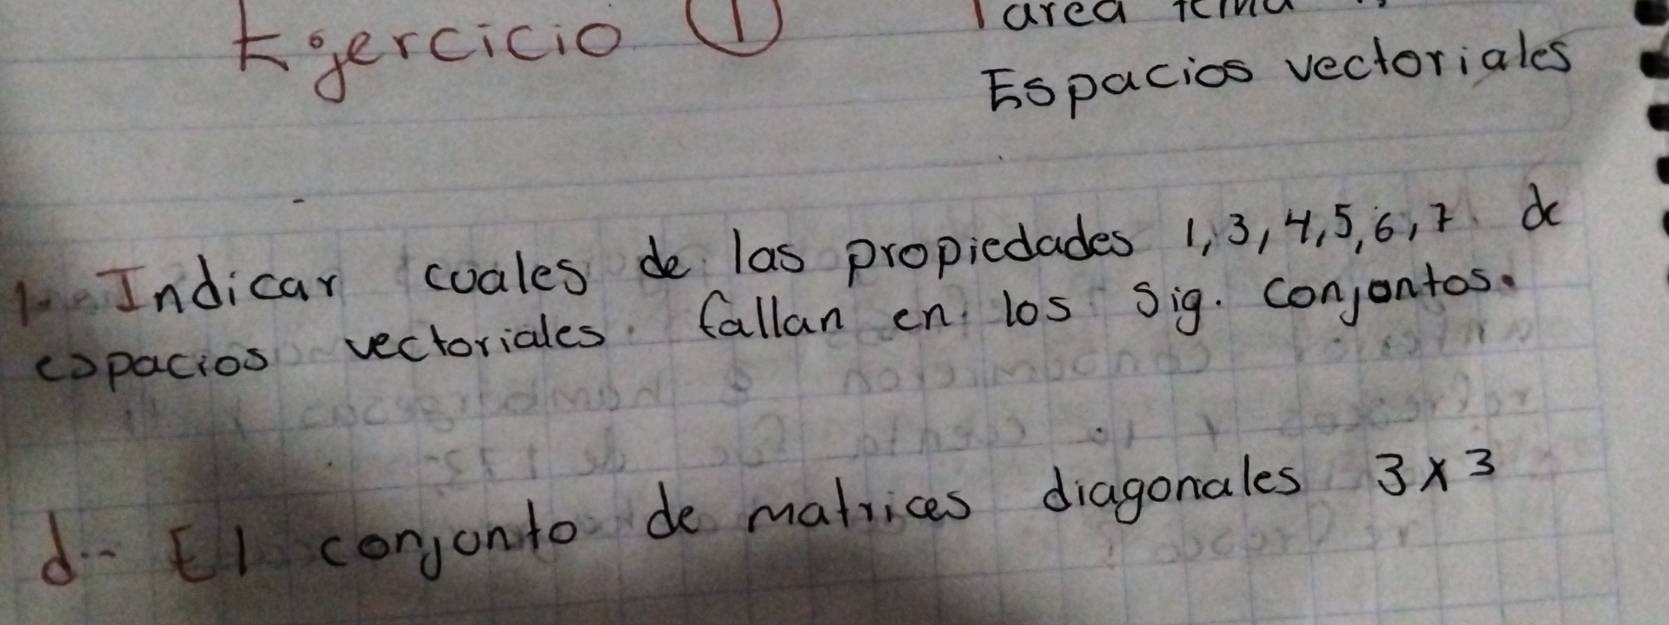 Ejercicio 1
Tarea tema
Espacios vectoriales
1.- Indicar cuales de las propiedades 1, 3, 4, 5, 6, 7 de
espacios vectoriales fallan en los sig. conjontos.
d.- El conjonto de matrices diagonales 3x3